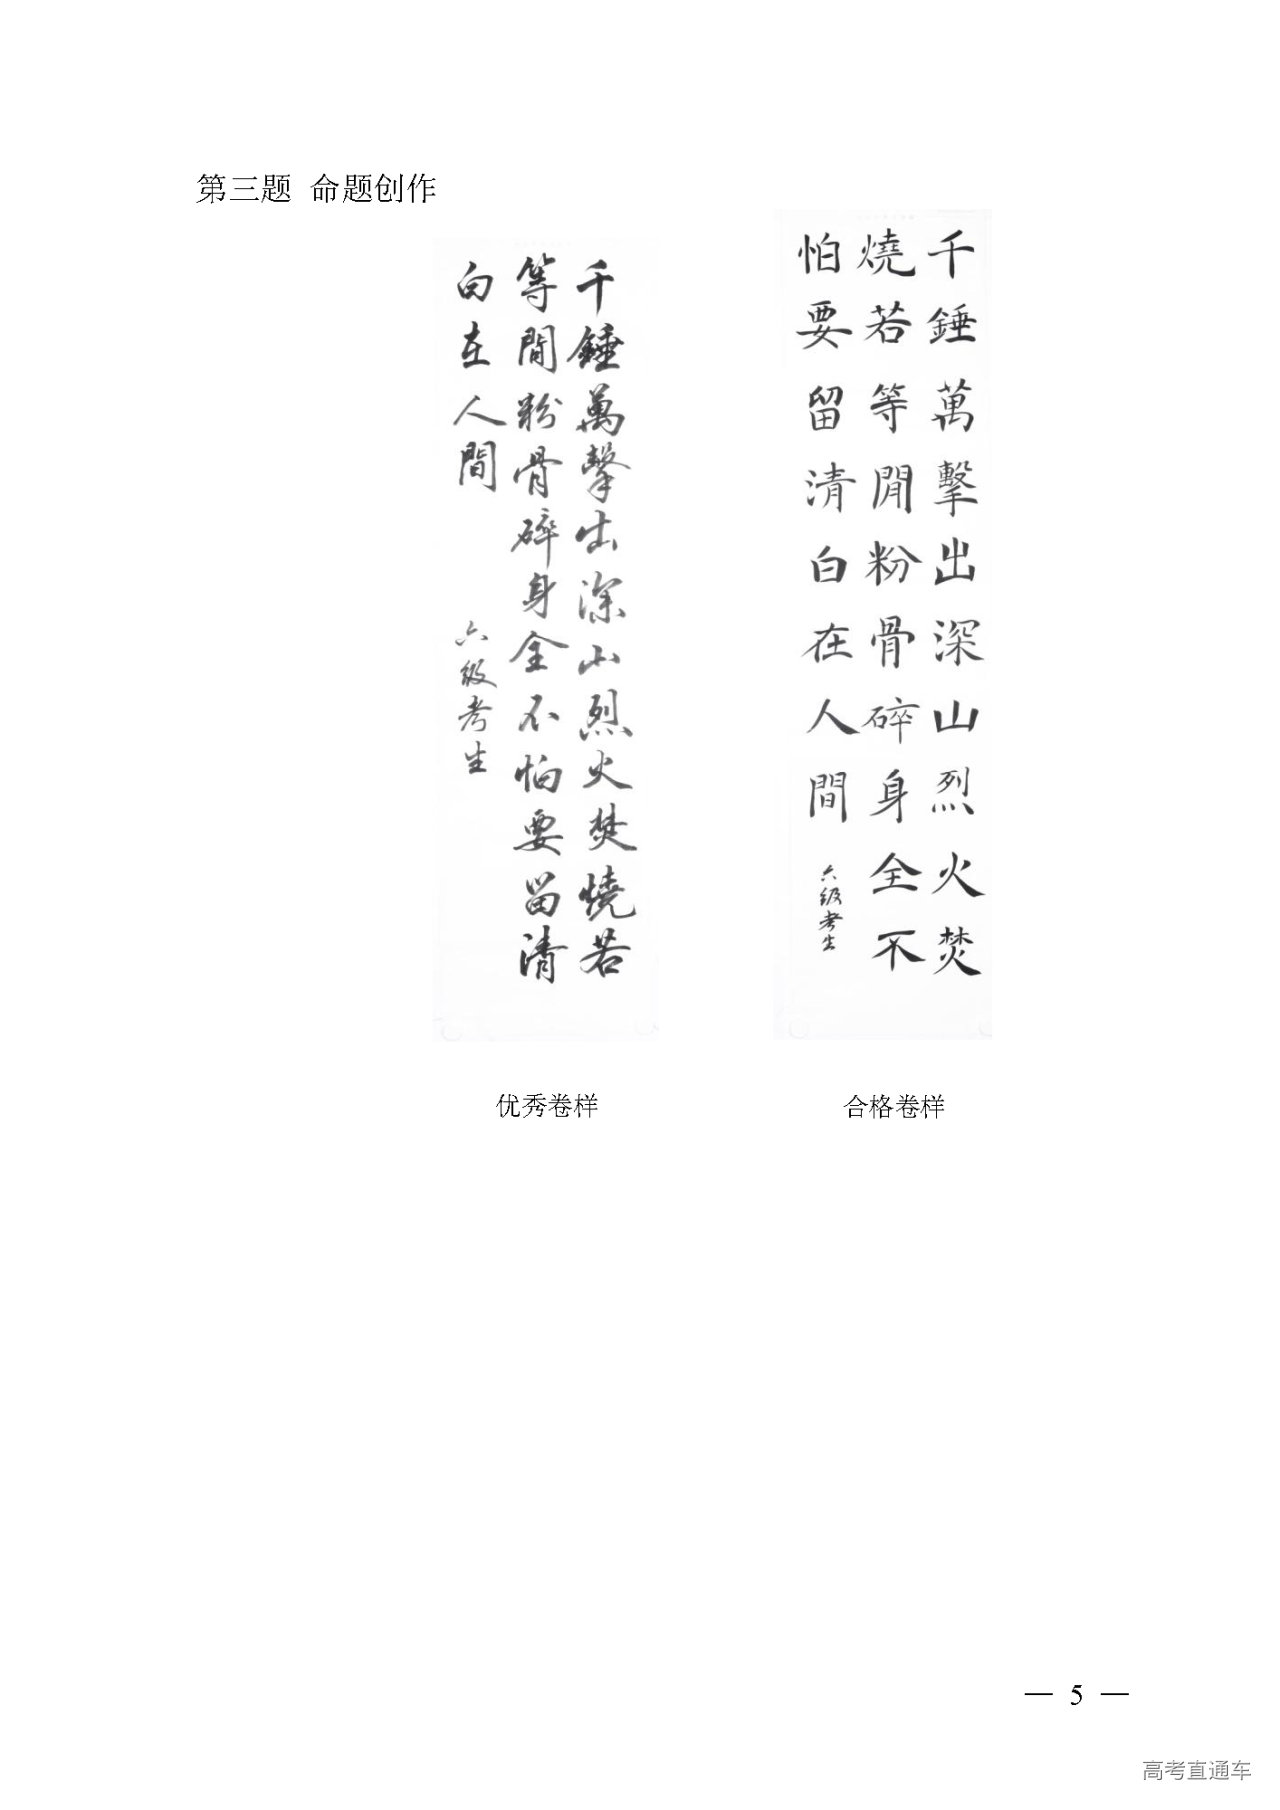 第三题 命题创作
千錘萬擊出深山烈火焚燒若
等閒粉骨碎身全不怕要留清
白在人間
六级考生
千錘萬擊出深山烈火焚
燒若等閒粉骨碎身全不
怕要留清白在人間
六级考生
优秀卷样
合格卷样
— 5 —
高考直通车